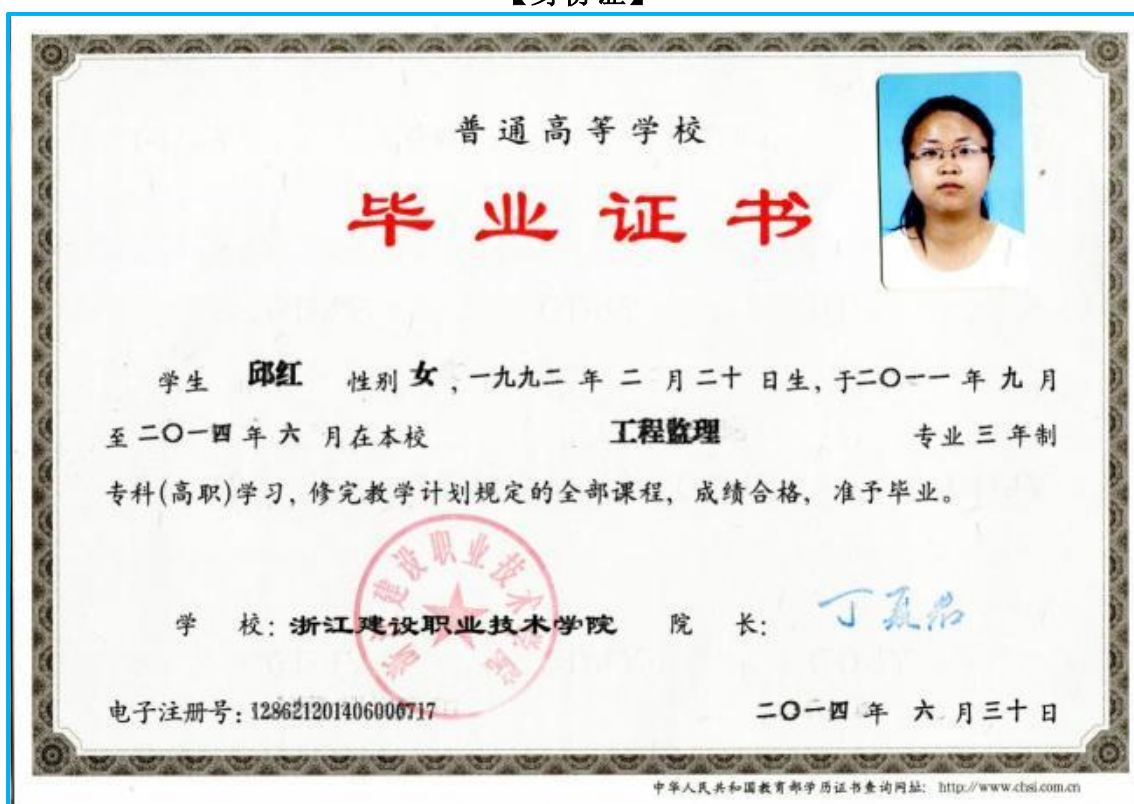 【身份证】
普通高等学校
毕业证书
学生 邱红 性别 女，一九九二 年 二 月 二十 日生，于二〇一一 年 九 月
至 二〇一四 年 六 月在本校 工程监理 专业 三 年制
专科(高职)学习，修完教学计划规定的全部课程，成绩合格，准予毕业。
浙江建设职业技术学院
学 校：浙江建设职业技术学院 院 长：
电子注册号：128621201406006717 二〇一四 年 六 月 三十 日
中华人民共和国教育部学历证书查询网址： http://www.chsi.com.cn